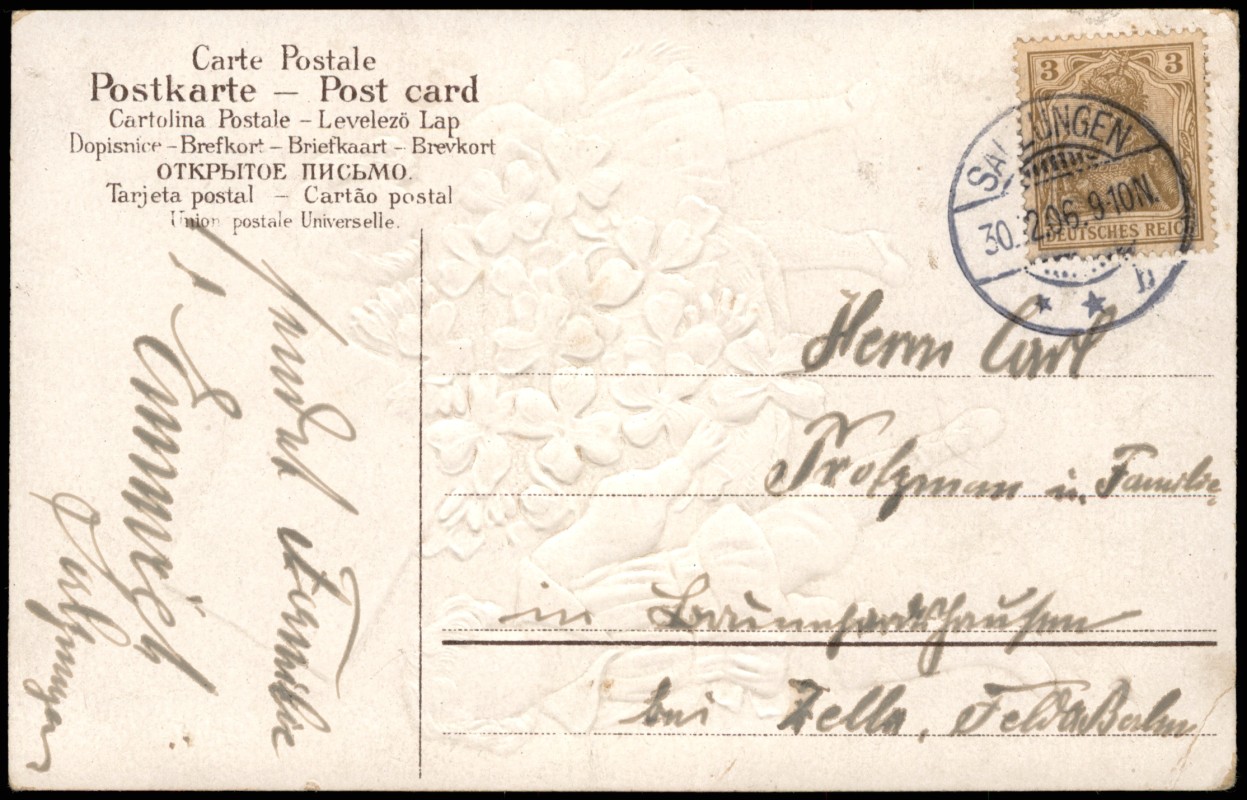 Carte Postale
Postkarte – Post card
Cartolina Postale – Levelezö Lap
Dopisnice – Brefkort – Briefkaart – Brevkort
ОТКРЫТОЕ ПИСЬМО.
Tarjeta postal – Cartão postal
Union postale Universelle.
3 3
DEUTSCHES REICH
SALZUNGEN
30.12.06. 9-10N.
Herrn Carl
Trotzman u. Familie
in Brunnhardtshausen
bei Zella, Feldabahn
Familie
Emmrich
Salzungen